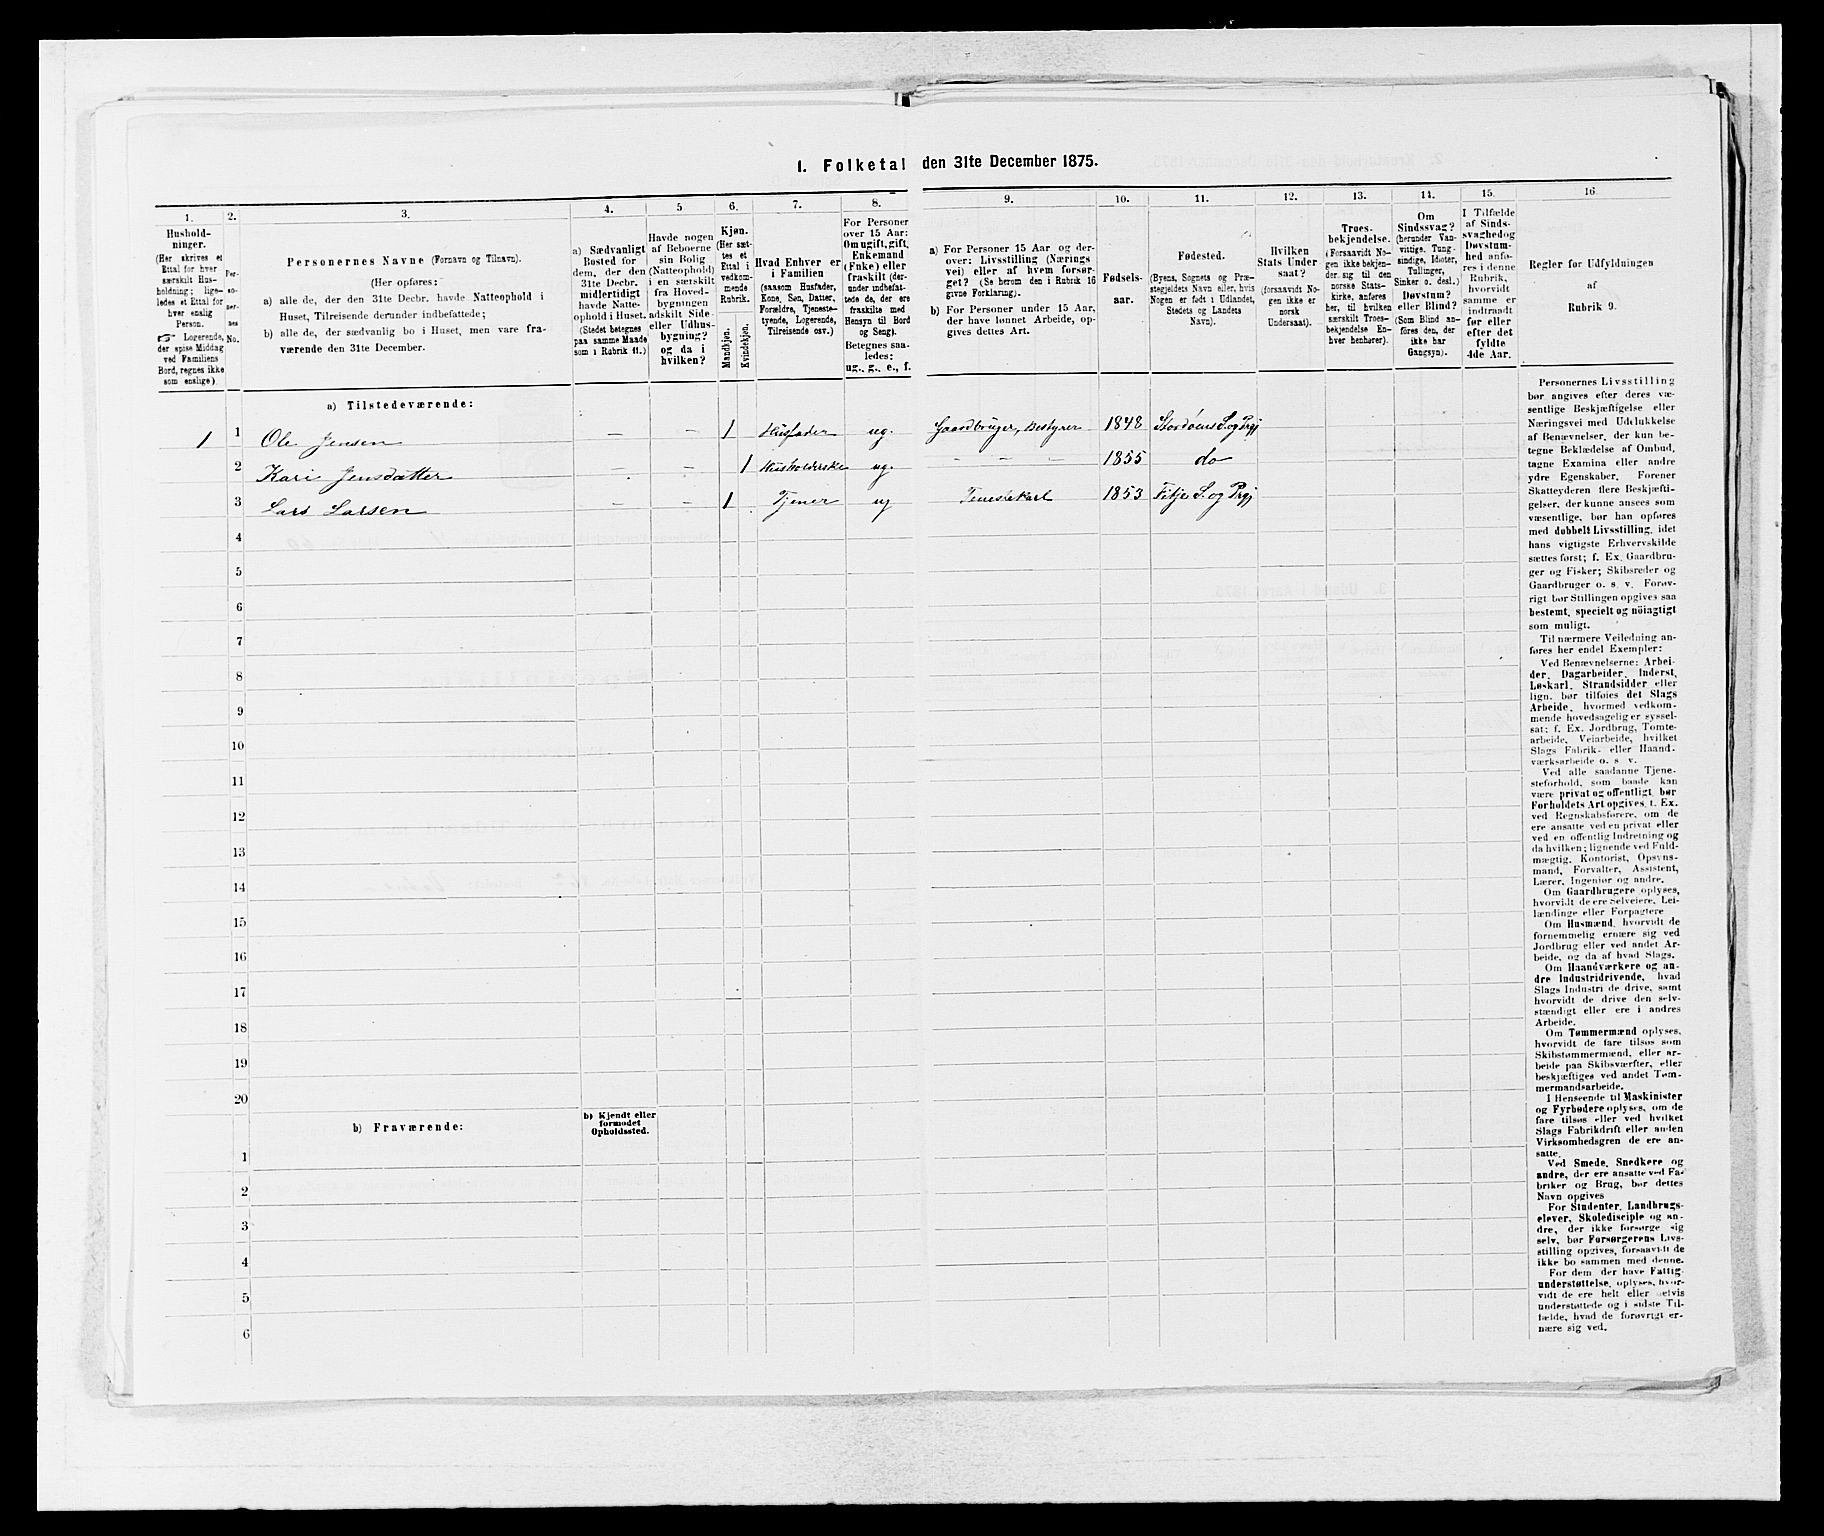 1. Folketal den 31te December 1875.
1. 2. 3. 4. 5 6. 7. 8. 9. 10. 11. 12. 13. 14. 15. 16.
Hushold-
ninger.
(Her skrives et
Ettal for hver
særskilt Hus-
holdning; lige-
ledes et Ettal for
hver enslig
Person.
☞ Logerende,
der spise Middag
ved Familiens
Bord, regnes ikke
som enslige).
Per-
so-
ner-
nes
No.
Personernes Navne (Fornavn og Tilnavn).
(Her opføres:
a) alle de, der den 31te Decbr. havde Natteophold i
Huset, Tilreisende derunder indbefattede;
b) alle de, der sædvanlig bo i Huset, men vare fra-
værende den 31te December.
a) Sædvanligt
Bosted for
dem, der den
31te Decbr.
midlertidigt
havde Natte-
ophold i Huset.
(Stedet betegnes
paa samme Maade
som i Rubrik 11.)
Havde nogen
af Beboerne
sin Bolig
(Natteophold)
i en særskilt
fra Hoved-
bygningen
adskilt Side-
eller Udhus-
bygning?
og da i
hvilken?
Kjøn.
(Her sæt-
tes et
Ettal i
vedkom-
mende
Rubrik.
Mandkjøn.
Kvindekjøn.
Hvad Enhver er
i Familien
(saasom Husfader,
Kone, Søn, Datter,
Forældre, Tjeneste-
tyende, Logerende,
Tilreisende osv.)
For Personer
over 15 Aar:
Om ugift, gift,
Enkemand
(Enke) eller
fraskilt (der-
under indbefat-
tede de, der ere
fraskilte med
Hensyn til Bord
og Seng).
Betegnes saa-
ledes:
ug., g., e., f.
a) For Personer 15 Aar og der-
over: Livsstilling (Nærings
vei) eller af hvem forsør-
get? (Se herom den i Rubrik 16
givne Forklaring).
b) For Personer under 15 Aar,
der have lønnet Arbeide, op-
gives dettes Art.
Fødsels-
aar.
Fødested.
(Byens, Sognets og Præ-
stegjeldets Navn eller, hvis
Nogen er født i Udlandet,
Stedets og Landets
Navn).
Hvilken
Stats Under
saat?
(forsaavidt No-
gen ikke er
norsk
Undersaat).
Troes-
bekjendelse.
(Forsaavidt No-
gen ikke bekjen-
der sig til den
norske Stats-
kirke, anføres
her, til hvilken
særskilt Troes-
bekjendelse En-
hver henhører).
Om
Sindssvag?
(herunder Van-
vittige, Tung-
sindige, Idioter,
Tullinger,
Sinker o. desl.)
Døvstum?
eller Blind?
(Som Blind an-
føres den, der
ikke har
Gangsyn).
I Tilfælde
af Sinds-
svaghed og
Døvstum-
hed anfø-
res i denne
Rubrik,
hvorvidt
samme er
indtraadt
før eller
efter det
fyldte
4de Aar.
Regler for Udfyldningen
af
Rubrik 9.
a) Tilstedeværende:
1 1 Ole Jensen – – 1 Husfader ug. Gaardbruger, Bestyrer 1848 Stordøens S. og Prgj
2 Kari Jensdatter – – 1 Husholderske ug. – – – 1855 do
3 Lars Larsen – – 1 Tjener ug Tenestekarl 1853 Fitje S. og Prgj
4
5
6
7
8
9
10
11
12
13
14
15
16
17
18
19
20
b) Fraværende:
b) Kjendt eller
formodet
Opholdssted.
1
2
3
4
5
6
Personernes Livsstilling
bør angives efter deres væ-
sentlige Beskjæftigelse eller
Næringsvei med Udelukkelse
af Benævnelser, der kun be-
tegne Beklædelse af Ombud,
tagne Examina eller andre
ydre Egenskaber. Forener
Skatteyderen flere Beskjæfti-
gelser, der kunne ansees som
væsentlige, bør han opføres
med dobbelt Livsstilling, idet
hans vigtigste Erhvervskilde
sættes først; f. Ex. Gaardbru-
ger og Fisker; Skibsreder og
Gaardbruger o. s. v. Forøv-
rigt bør Stillingen opgives saa
bestemt, specielt og nöiagtigt
som muligt.
Til nærmere Veiledning an-
føres her endel Exempler:
Ved Benævnelserne: Arbei-
der, Dagarbeider, Inderst,
Løskarl, Strandsidder eller
lign. bør tilføies det Slags
Arbeide, hvormed vedkom-
mende hovedsagelig er syssel-
sat; f. Ex. Jordbrug, Tomte-
arbeide, Veiarbeide, hvilket
Slags Fabrik- eller Haand-
værksarbeide o. s. v.
Ved alle saadanne Tjene-
steforhold, som baade kan
være privat og offentligt, bør
Forholdets Art opgives, t. Ex.
ved Regnskabsførere, om de
ere ansatte ved en privat eller
ved en offentlig Indretning og
da hvilken; lignende ved Fuld-
mægtig, Kontorist, Opsyns-
mand, Forvalter, Assistent,
Lærer, Ingeniør og andre.
Om Gaardbrugere oplyses,
hvorvidt de ere Selveiere, Lei-
lændinge eller Forpagtere
Om Husmænd, hvorvidt de
fornemmelig ernære sig ved
Jordbrug eller ved andet Ar-
beide, og da af hvad Slags.
Om Haandværkere og an-
dre Industridrivende, hvad
Slags Industri de drive, samt
hvorvidt de drive den selv-
stændigt eller ere i andres
Arbeide.
Om Tømmermænd oplyses,
hvorvidt de fare tilsøs som
Skibstømmermænd, eller ar-
beide paa Skibsværfter, eller
beskjæftiges ved andet Tøm-
mermandsarbeide.
I Henseende til Maskinister
og Fyrbødere oplyses, om de
fare tilsøs eller ved hvilket
Slags Fabrikdrift eller anden
Virksomhedsgren de ere an-
satte.
Ved Smede, Snedkere og
andre, der ere ansatte ved Fa-
briker og Brug, bør dettes
Navn opgives
For Studenter, Landbrugs-
elever, Skoledisciple og an-
dre, der ikke forsørge sig
selv, bør Forsørgerens Livs-
stilling opgives, forsaavidt de
ikke bo sammen med denne.
For dem, der have Fattig-
understøttelse, oplyses, hvor-
vidt de ere helt eller delvis
understøttede og i sidste Til-
fælde, hvad de forøvrigt er-
nære sig ved.